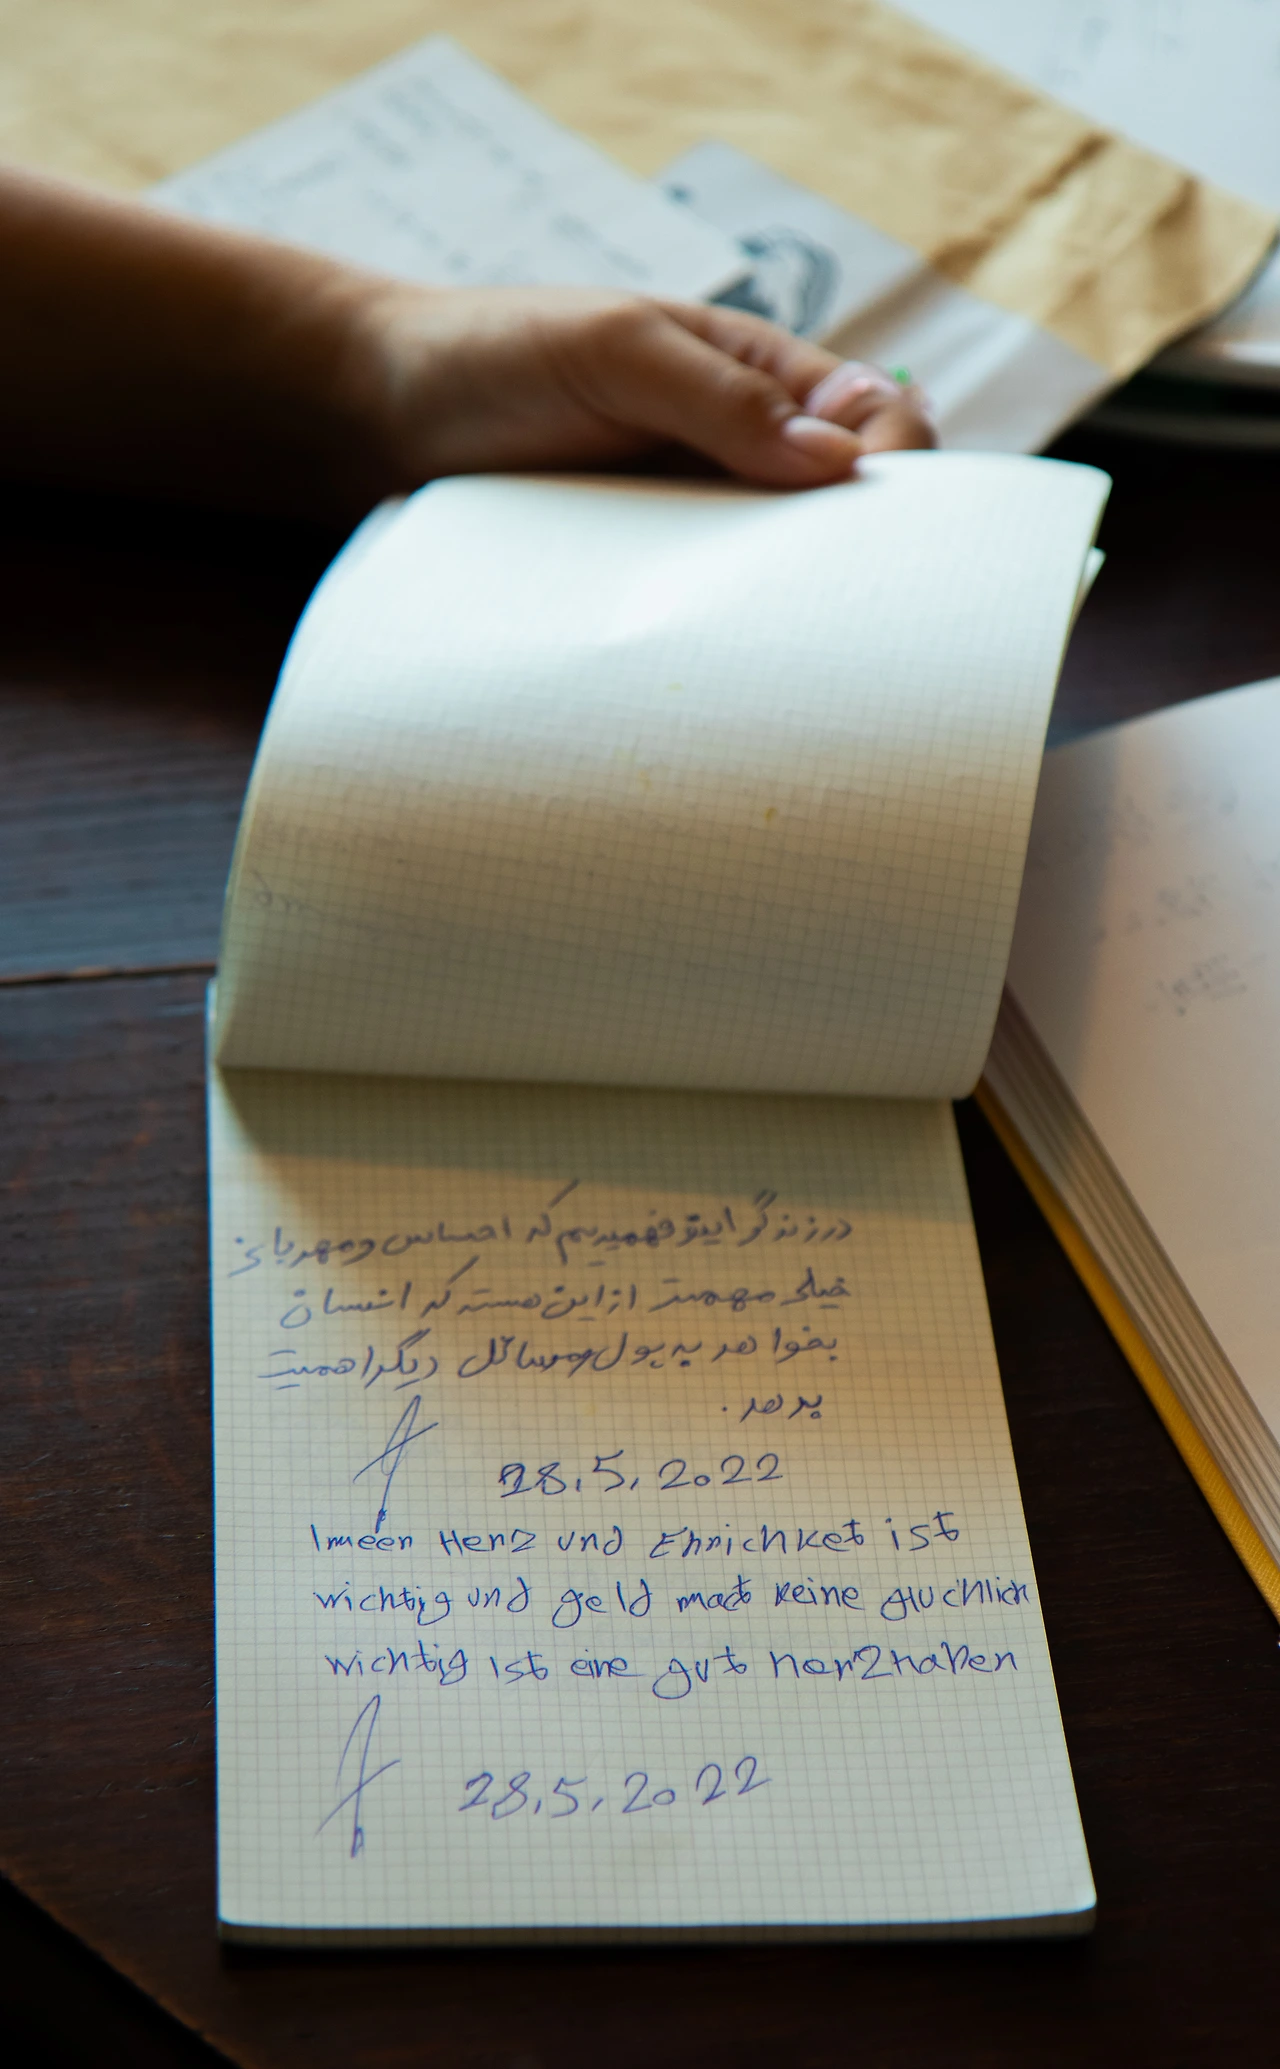 در زندگی اینو فهمیدیم که احساس و مهربانی
خیلی مهمتر از این هسته که انسان
بخواهد به پول و مسائل دیگر اهمیت
بدهد.
28.5.2022
Imeer Herz und Ehrichket ist
wichtig und geld macht keine gluchlich
wichtig ist eine gut herz haben
28.5.2022